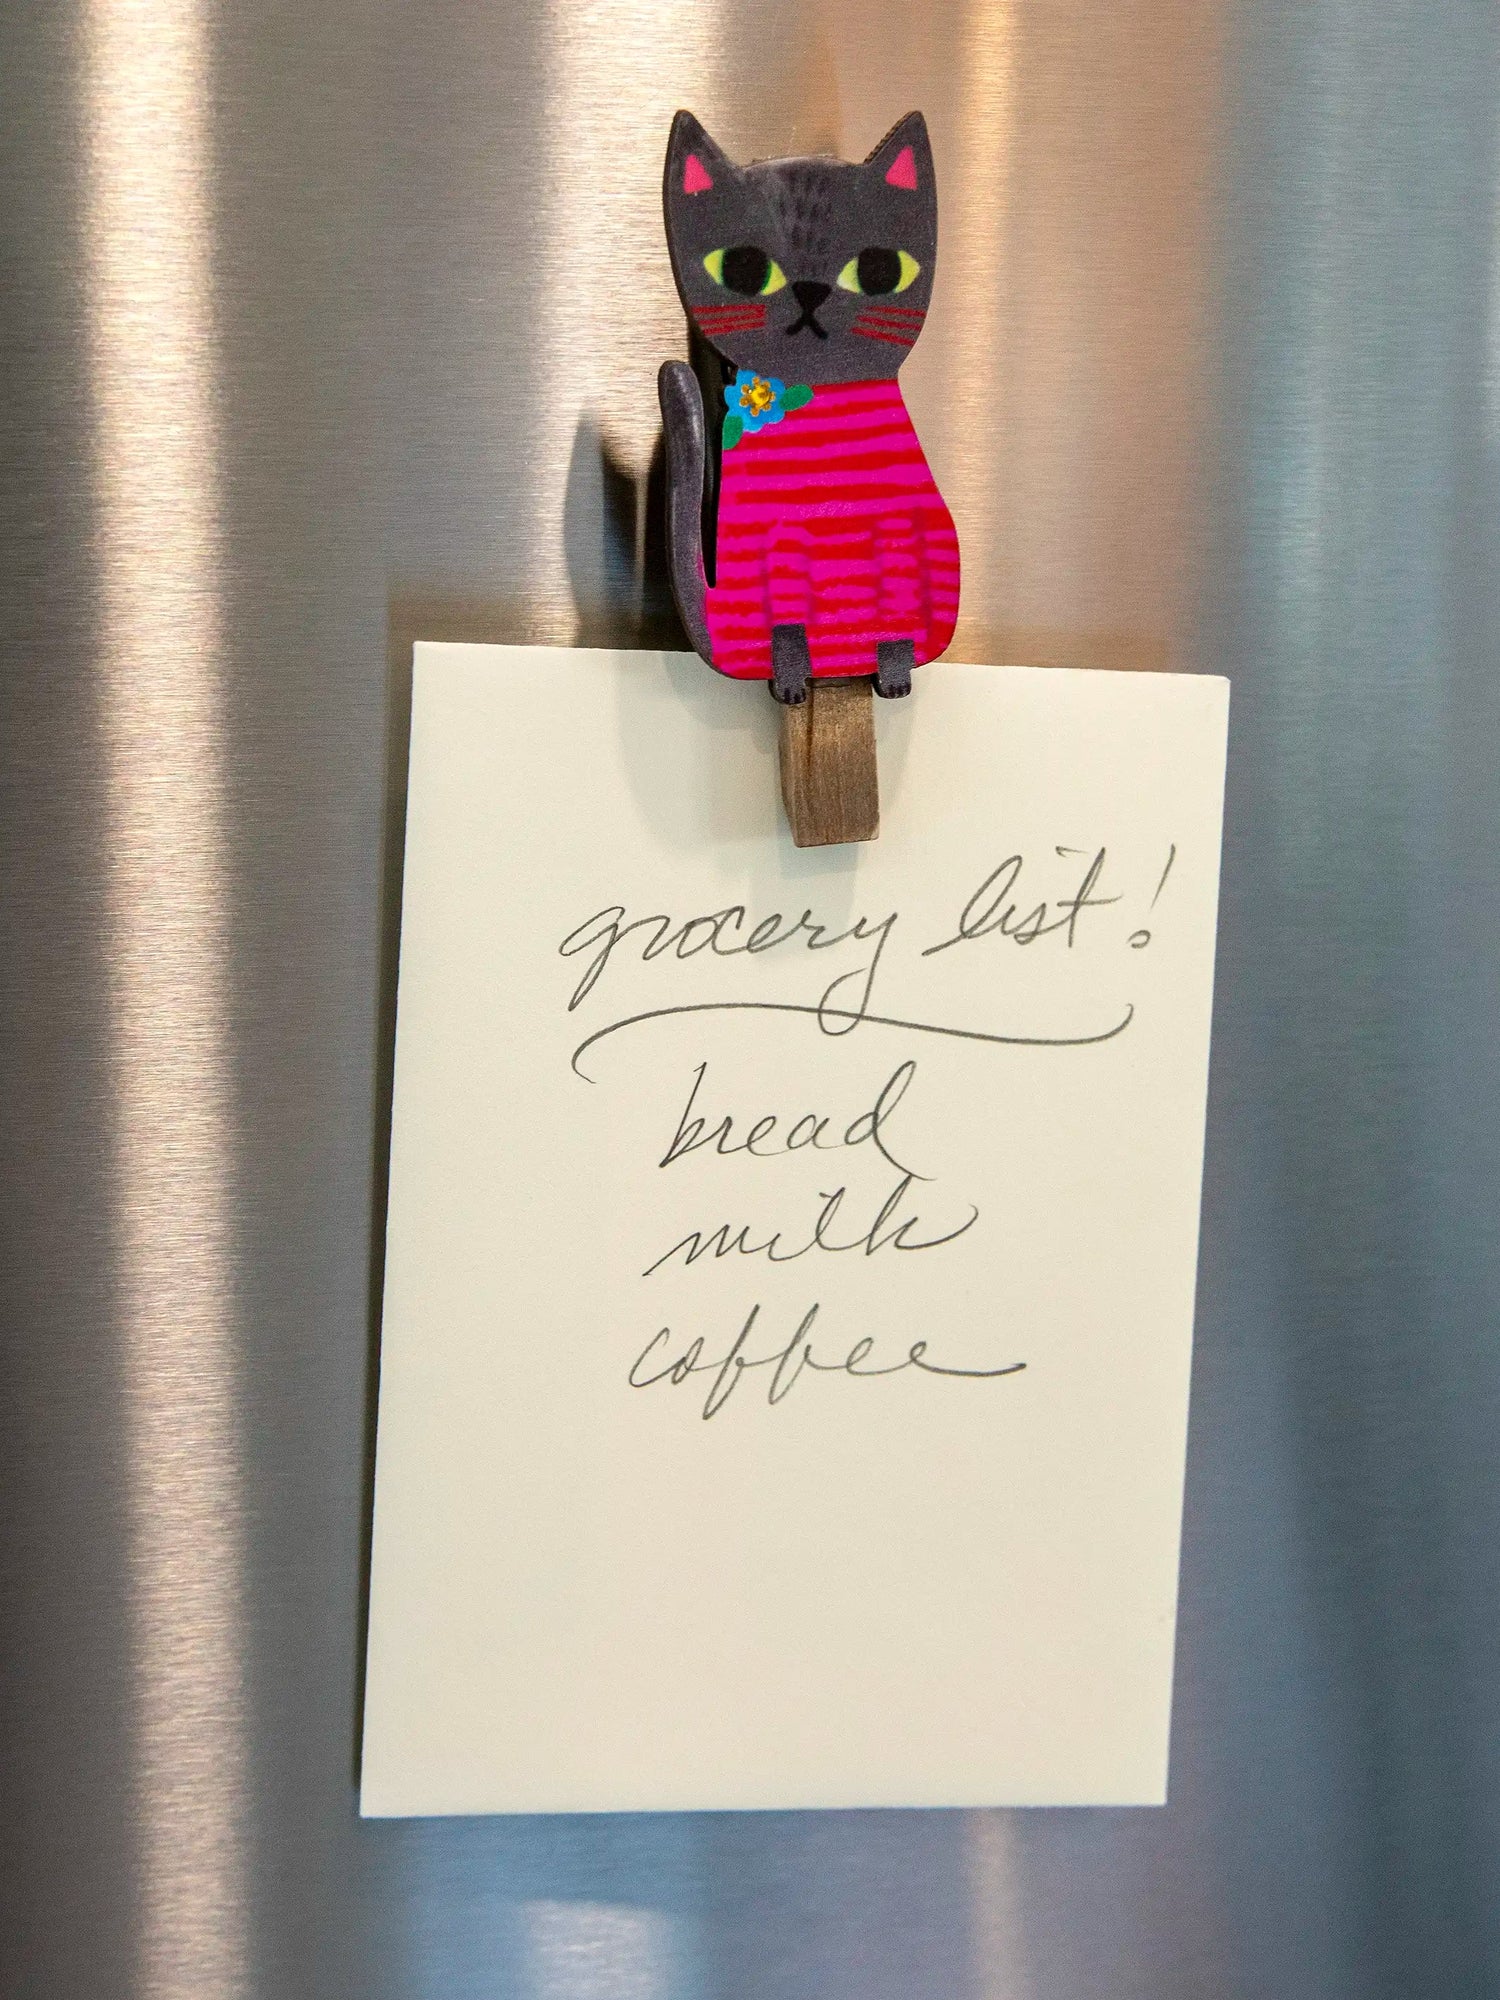 grocery list!
bread
milk
coffee